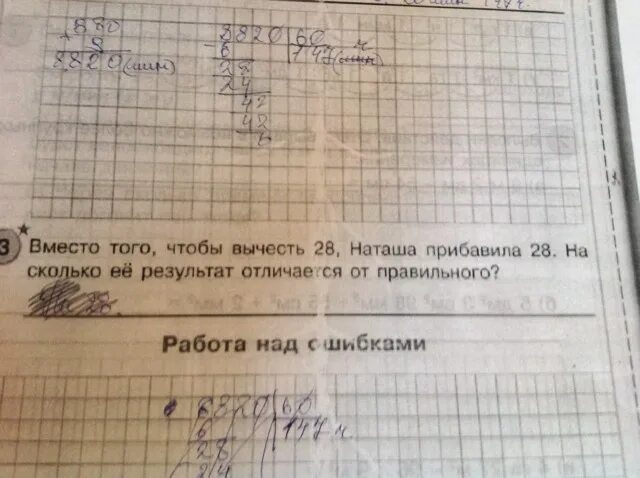 880
8
8820(мин)
8820 60
6 147
28
24
42
42
3 Вместо того, чтобы вычесть 28, Наташа прибавила 28. На
сколько её результат отличается от правильного?
Работа над ошибками
8820 60
6 147 ч.
28
24